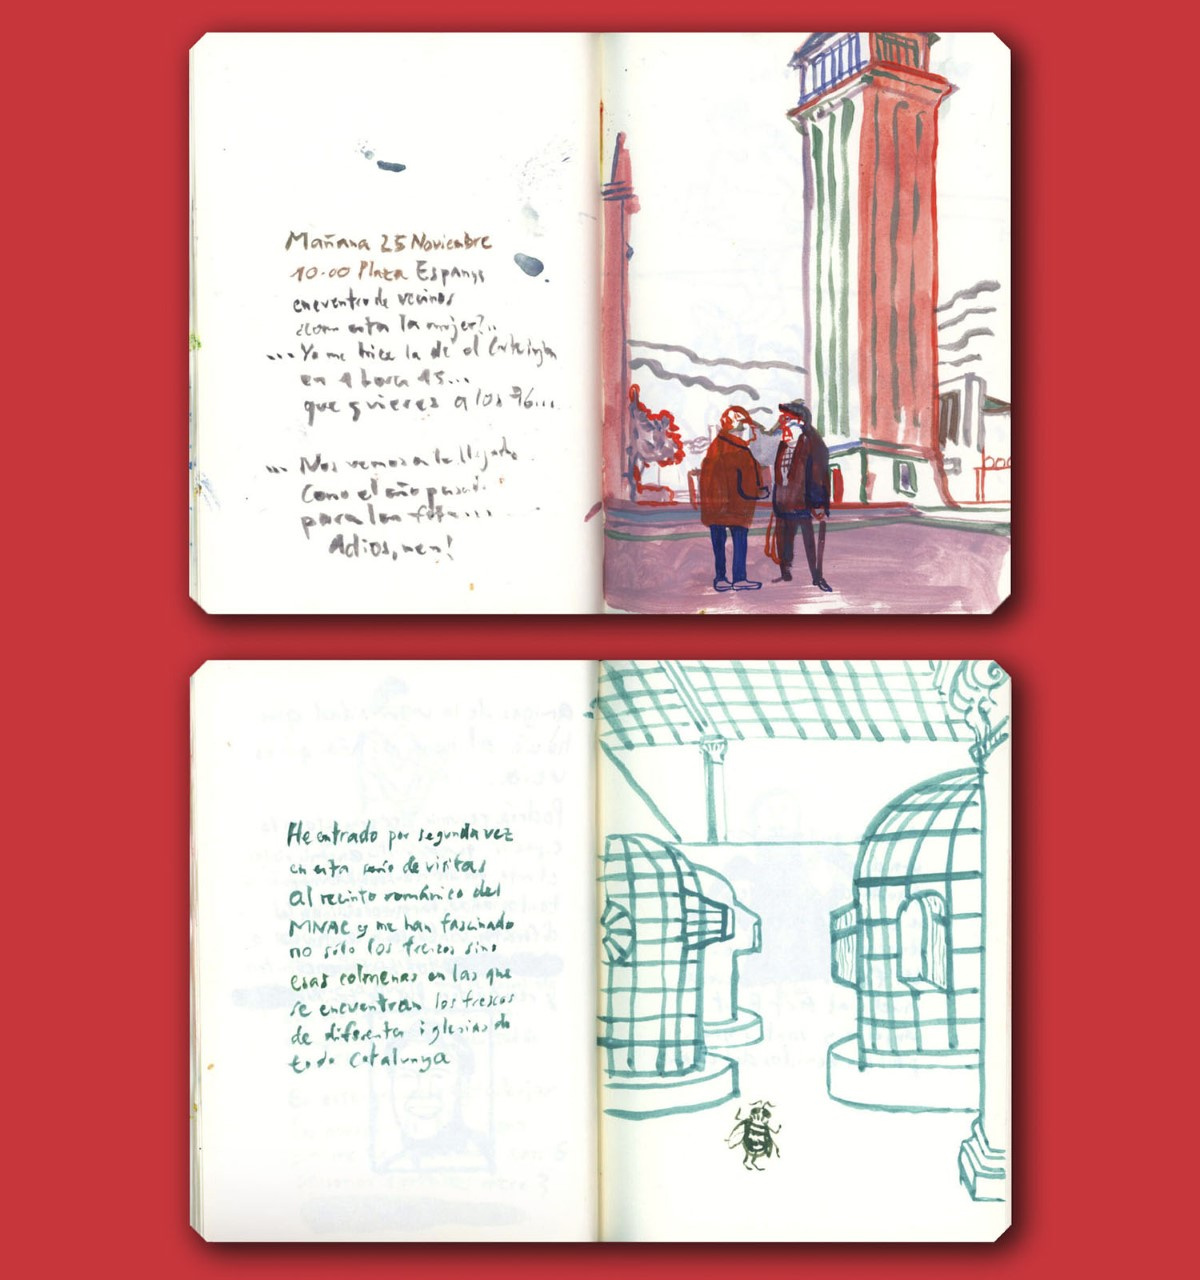 Mañana 25 Noviembre
10.00 Plaza Espanya
encuentro de vecinos
¿como esta la mujer?..
... Yo me hice la de el
en 1 hora 45...
que quieres a los 76...
... Nos vemos a la llegada
Como el año pasado
para la foto...
Adios, nen!
He entrado por segunda vez
en esta serie de visitas
al recinto románico del
MNAC y me han fascinado
no sólo los frescos sino
esas colmenas en las que
se encuentran los frescos
de diferentes iglesias de
toda Catalunya